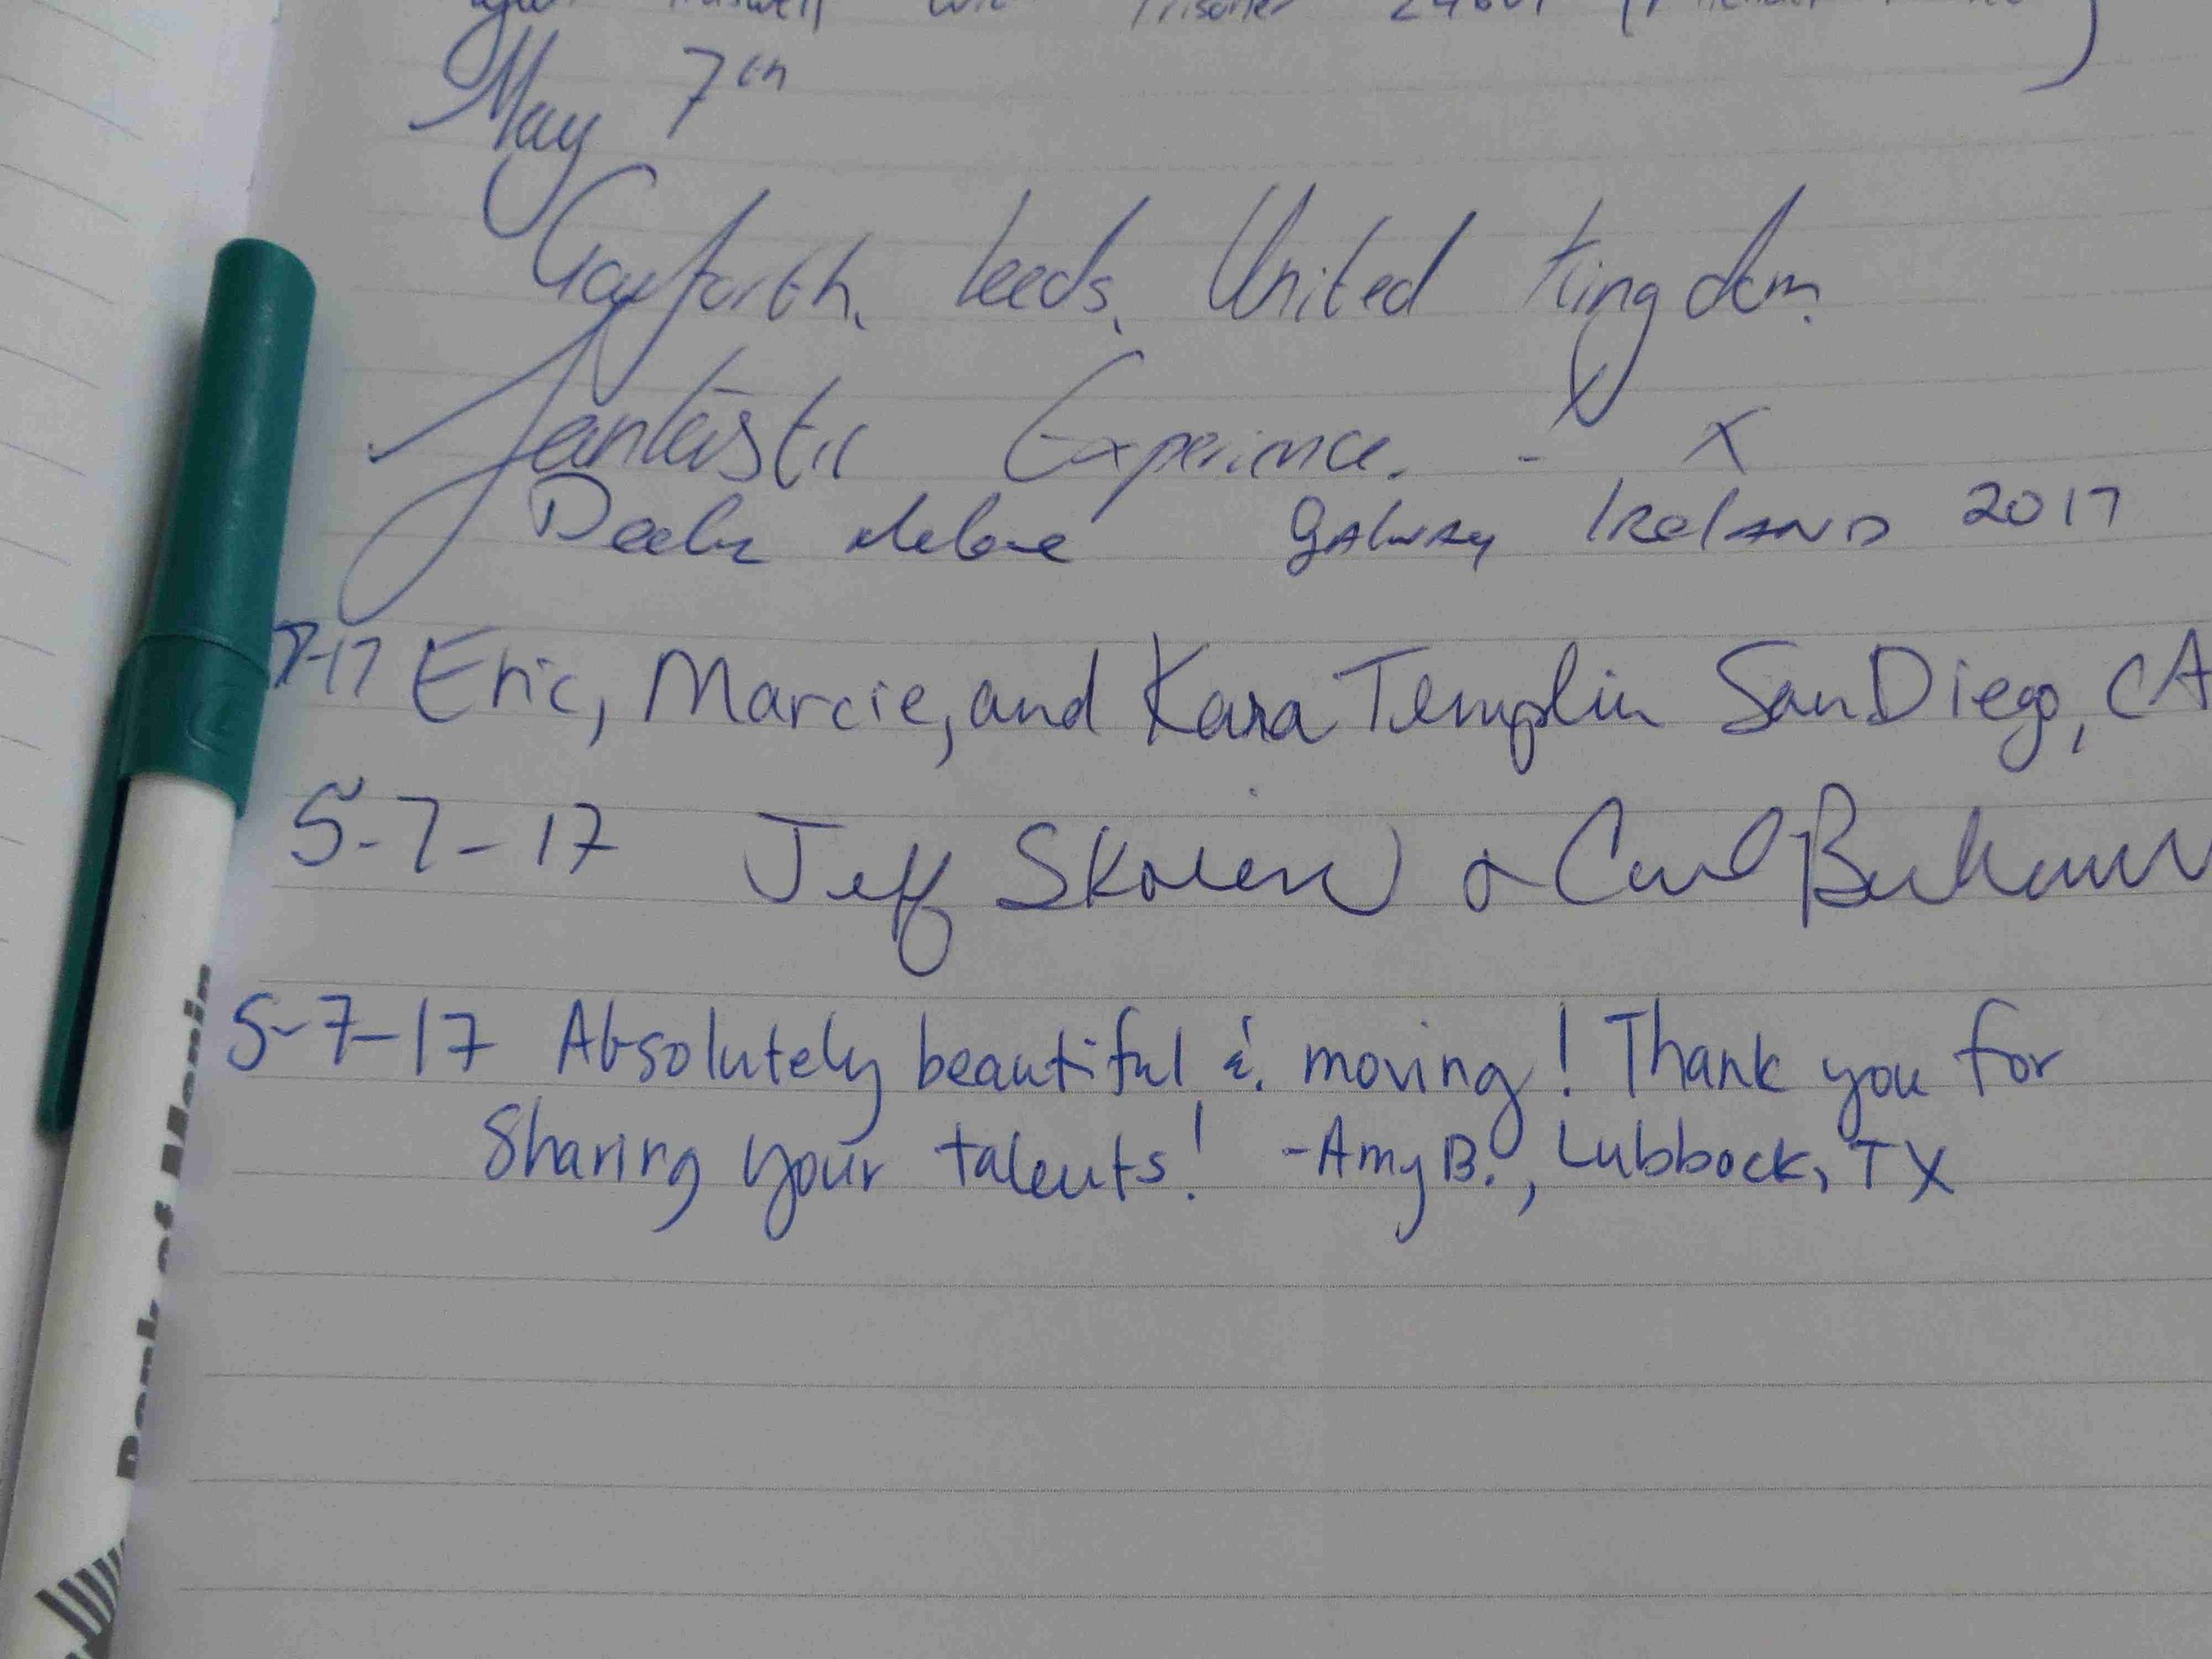 Prisoner 24601
May 7th
Garforth, Leeds, United Kingdom
Fantastic Experience. - X
Galway IReLAND 2017
7-17 Eric, Marcie, and Kara Templin San Diego, CA
5-7-17 Jeff &
5-7-17 Absolutely beautiful & moving! Thank you for
Sharing your talents! -Amy B., Lubbock, TX
Bank of